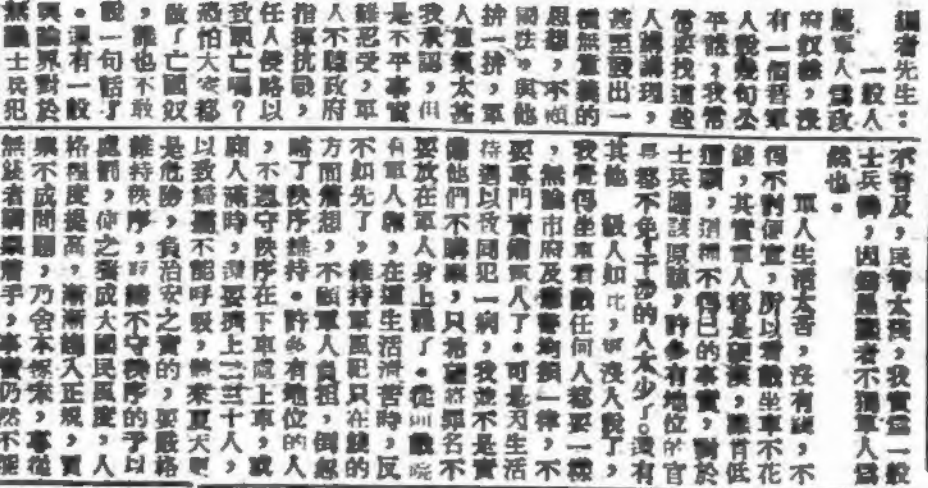 編者先生：
一般人
認軍人為政
府奴隸，沒
有一個替軍
人說幾句公
平話，我常
常要找這些
人講講理，
甚至發出一
種無意義的
思想，不顧
國法，與他
拚一拚，軍
人意氣太甚
我承認，但
是不平事實
難忍受，軍
人不聽政府
指揮抗戰，
任人侵略以
致亡嗎？
恐怕大家都
做了亡國奴
，誰也不敢
說一句話了
。還有一般
輿論界對於
無論士兵犯
不普及，民智太淺，我實為一般
士兵憐，因無識者不獨軍人為
然也。
軍人生活太苦，沒有錢，不
得不討便宜，所以看戲坐車不花
錢，其實軍人都是硬漢，誰肯低
頭，消極不得已的事實，對於
士兵應該原諒，許多有地位的官
員都不免干涉的人太少了。還有
其他級人如此，就沒人說了，
我覺得坐車看戲任何人都要一樣
，無論市府及憲警均須一律，不
要專門責備軍人了。可是因生活
待遇以致同犯一病，我並不是責
備他們不購票，只希望將罪名不
要放在軍人身上罷了。從前戲院
有軍人席，在這生活清苦時，反
不如先了，維持軍風紀只在錢的
方面着想，不顧軍人負担，倒忽
略了秩序維持。許多有地位的人
，不遵守秩序在下車處上車，或
廂人滿時，還要擠上二三十人，
以致不能呼吸，將來夏天更
是危險，負治安之責的，要嚴格
維持秩序，對不守秩序的予以
處罰，使之養成大國民風度，人
格程度提高，漸漸歸入正規，買
票不成問題，乃舍本逐末，專從
無錢者購票着手，事實仍然不能